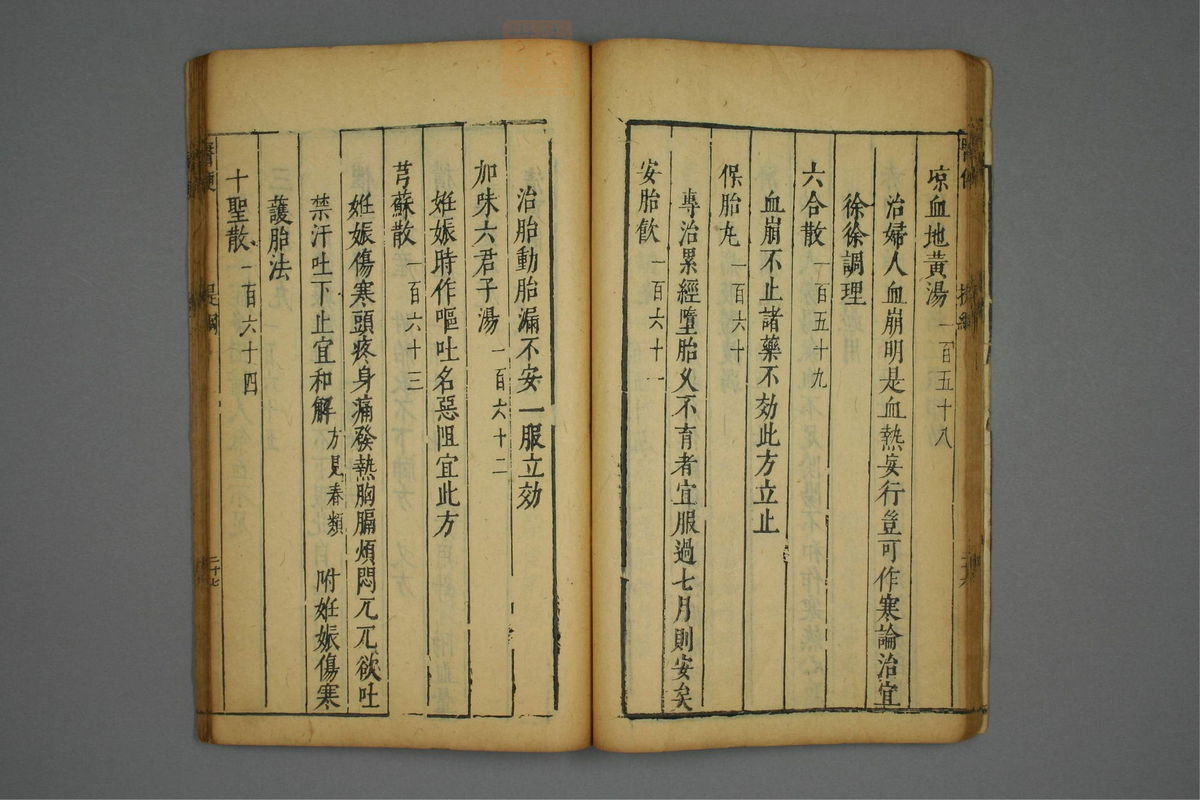 凉血地黃湯一百五十八
治婦人血崩明是血熱妄行豈可作寒論治宜
徐徐調理
六合散一百五十九
血崩不止諸藥不効此方立止
保胎丸一百六十
專治累經墮胎久不育者宜服過七月則安矣
安胎飲一百六十一
治胎動胎漏不安一服立効
加味六君子湯一百六十二
姙娠時作嘔吐名惡阻宜此方
芎蘇散一百六十三
姙娠傷寒頭疼身痛發熱胸膈煩悶兀兀欲吐
禁汗吐下止宜和解方見春類 附姙娠傷寒
三護胎法
十聖散一百六十四
醫便 提綱 二十七